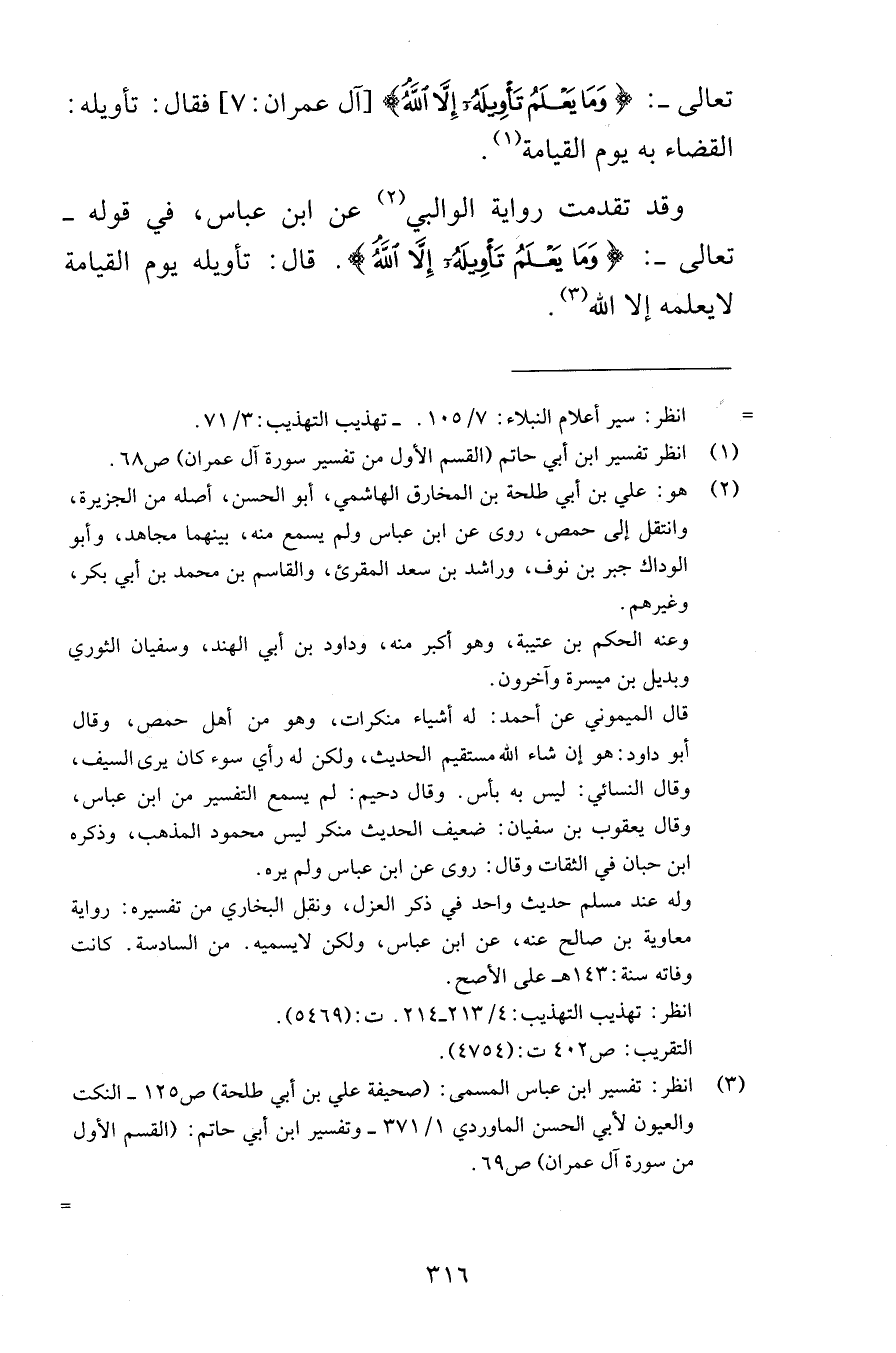 تعالى ـ: ﴿ وَمَا يَعْلَمُ تَأْوِيلَهُۥٓ إِلَّا ٱللَّهُ ﴾ [آل عمران: ٧] فقال: تأويله:
القضاء به يوم القيامة(١).
وقد تقدمت رواية الوالبي(٢) عن ابن عباس، في قوله ـ
تعالى ـ: ﴿ وَمَا يَعْلَمُ تَأْوِيلَهُۥٓ إِلَّا ٱللَّهُ ﴾. قال: تأويله يوم القيامة
لايعلمه إلا الله(٣).
= انظر: سير أعلام النبلاء: ٧/ ١٠٥. ـ تهذيب التهذيب: ٣/ ٧١.
(١) انظر تفسير ابن أبي حاتم (القسم الأول من تفسير سورة آل عمران) ص٦٨.
(٢) هو: علي بن أبي طلحة بن المخارق الهاشمي، أبو الحسن، أصله من الجزيرة،
وانتقل إلى حمص، روى عن ابن عباس ولم يسمع منه، بينهما مجاهد، وأبو
الوداك جبر بن نوف، وراشد بن سعد المقرئ، والقاسم بن محمد بن أبي بكر،
وغيرهم.
وعنه الحكم بن عتيبة، وهو أكبر منه، وداود بن أبي الهند، وسفيان الثوري
وبديل بن ميسرة وآخرون.
قال الميموني عن أحمد: له أشياء منكرات، وهو من أهل حمص، وقال
أبو داود: هو إن شاء الله مستقيم الحديث، ولكن له رأي سوء كان يرى السيف،
وقال النسائي: ليس به بأس. وقال دحيم: لم يسمع التفسير من ابن عباس،
وقال يعقوب بن سفيان: ضعيف الحديث منكر ليس محمود المذهب، وذكره
ابن حبان في الثقات وقال: روى عن ابن عباس ولم يره.
وله عند مسلم حديث واحد في ذكر العزل، ونقل البخاري من تفسيره: رواية
معاوية بن صالح عنه، عن ابن عباس، ولكن لايسميه. من السادسة. كانت
وفاته سنة: ١٤٣هـ على الأصح.
انظر: تهذيب التهذيب: ٤/ ٢١٣ـ٢١٤. ت: (٥٤٦٩).
التقريب: ص٤٠٢ ت: (٤٧٥٤).
(٣) انظر: تفسير ابن عباس المسمى: (صحيفة علي بن أبي طلحة) ص١٢٥ ـ النكت
والعيون لأبي الحسن الماوردي ١/ ٣٧١ ـ وتفسير ابن أبي حاتم: (القسم الأول
من سورة آل عمران) ص٦٩.
=
٣١٦